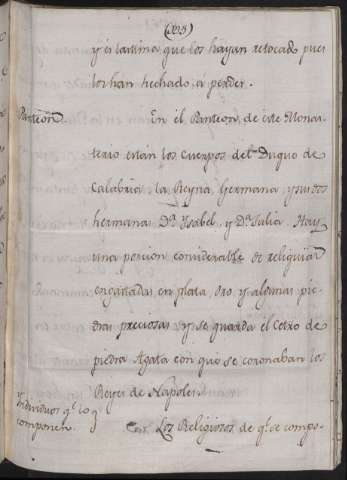 y es lastima que los hayan retocado pues
los han hechado á perder.
Panteon
En el Panteon de este Monas-
terio están los Cuerpos del Duque de
Calabria la Reyna Germana y sus dos
hermanas Dª Ysabel y Dª Julia. Hay
una porcion considerable de reliquias
engastadas en plata, oro y algunas pie-
dras preciosas y se guarda el Cetro de
piedra Agata con que se coronaban los
Reyes de Napoles.
Individuos q.e lo
componen.
Los Religiosos de q.e se compo-